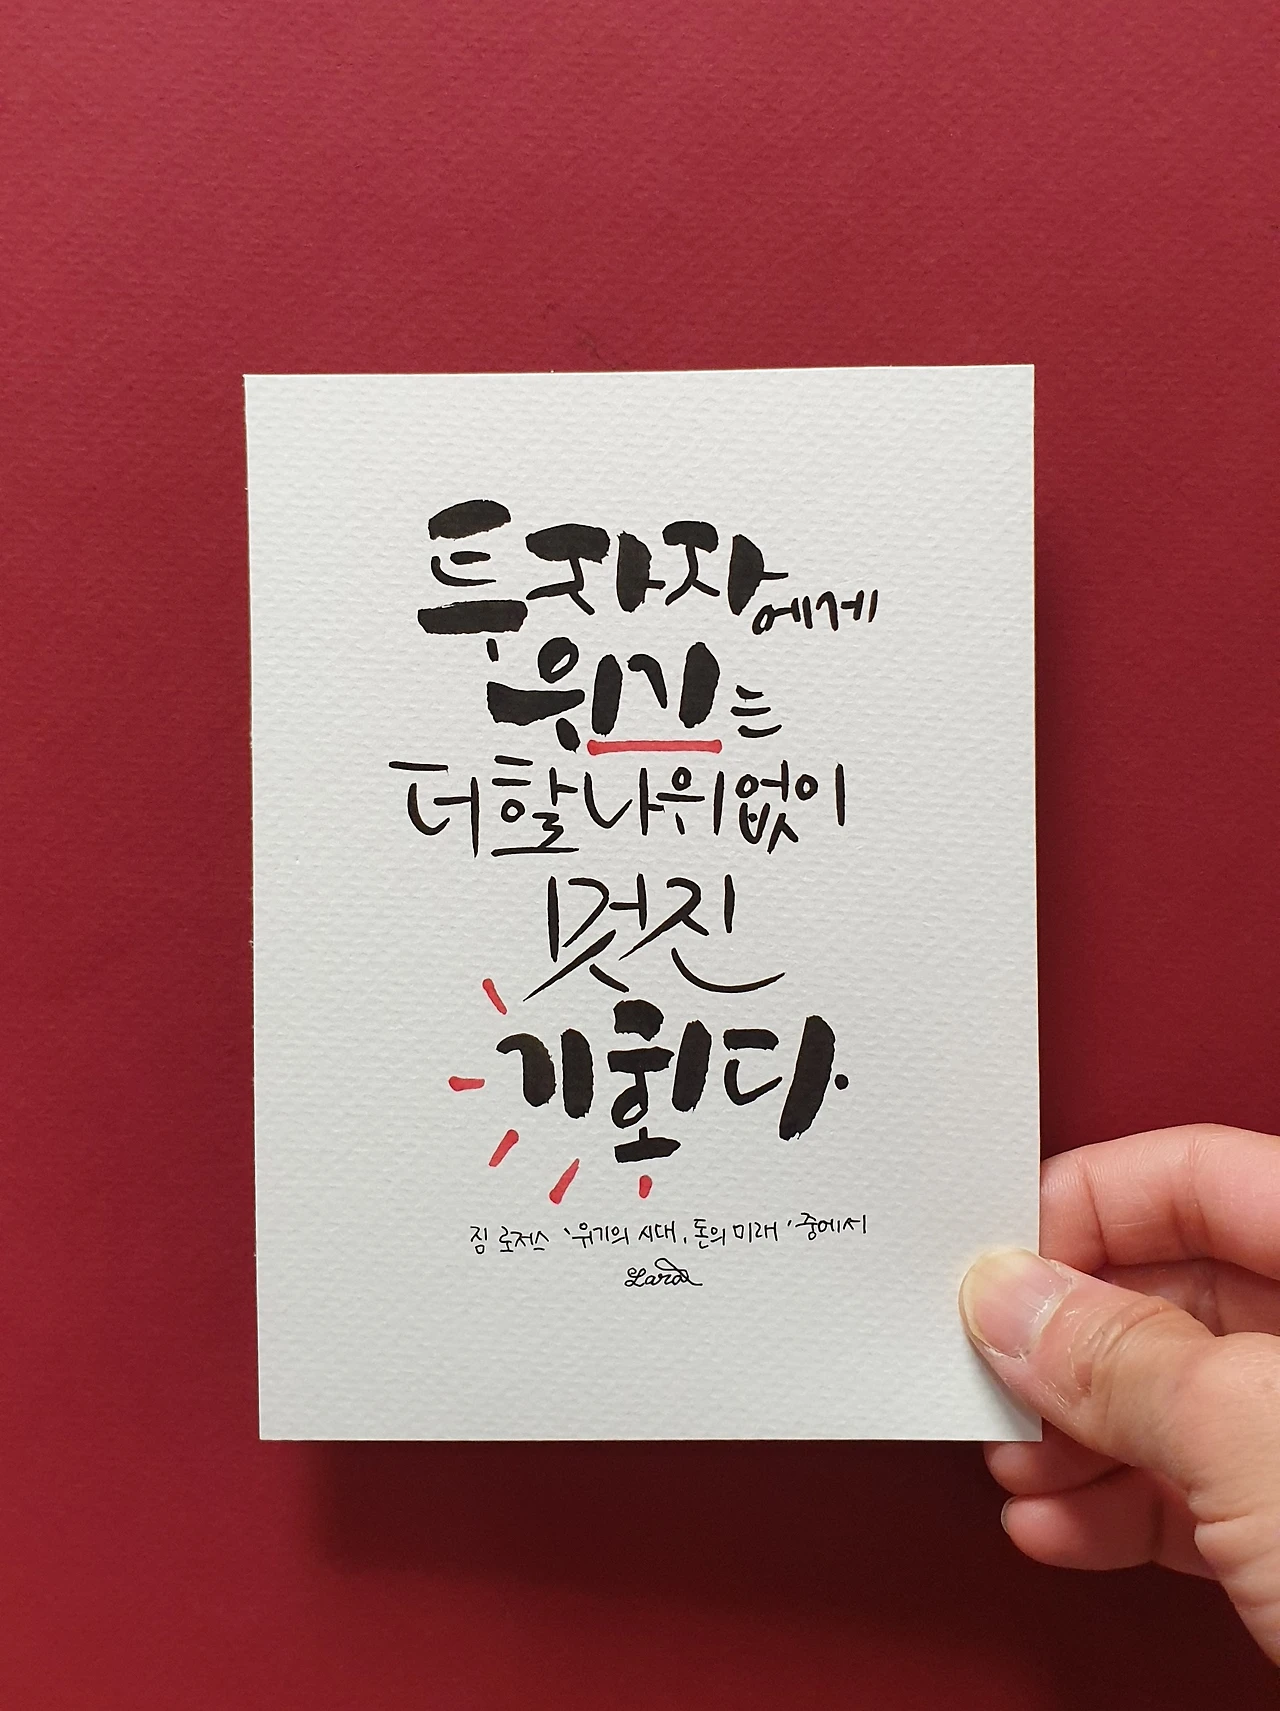 투자자에게
위기는
더할나위없이
멋진
기회다.
짐 로저스 '위기의 시대, 돈의 미래' 중에서
Lara